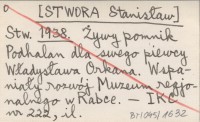 [STWORA Stanisław]
Stw. 1938. Żywy pomnik
Podhalan dla swego piewcy
Władysława Orkana. Wspa-
niały rozwój Muzeum regjo-
nalnego w Rabce. — IKC
nr 222, il.